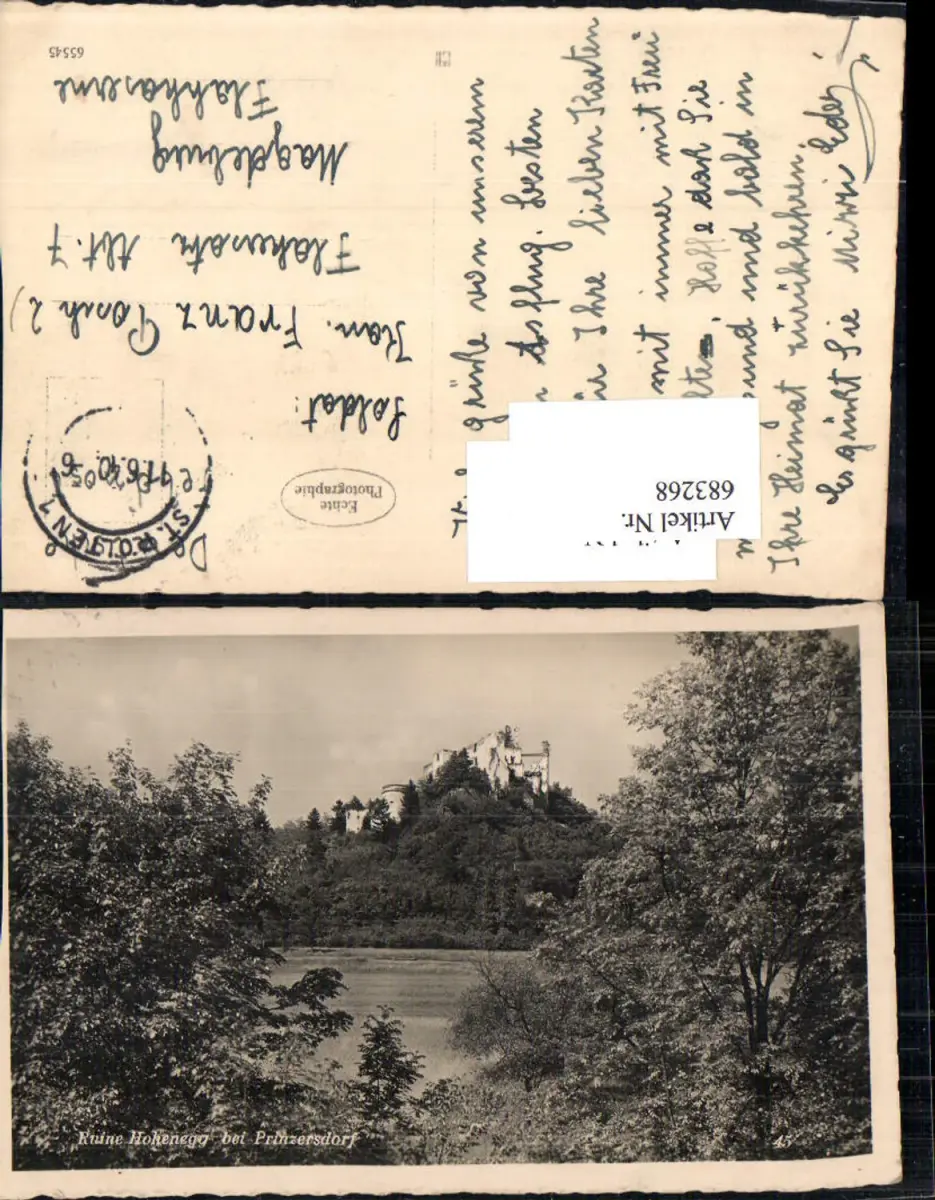 65545
Soldat:
Kan. Franz Posch 2)
Flakersatz Abt. 7
Magdeburg
Flakkaserne
Echte
Photographie
ST. PÖLTEN 1
11.6.40
grüße von unserem
Asflug. Besten
Ihre lieben Karten
mit immer mit Freu
Hoffe daß Sie
und bald in
Ihre Heimat zurükkehren.
Es grüßt Sie Mizzi Eder
Artikel Nr.
683268
Ruine Hohenegg bei Prinzersdorf
45